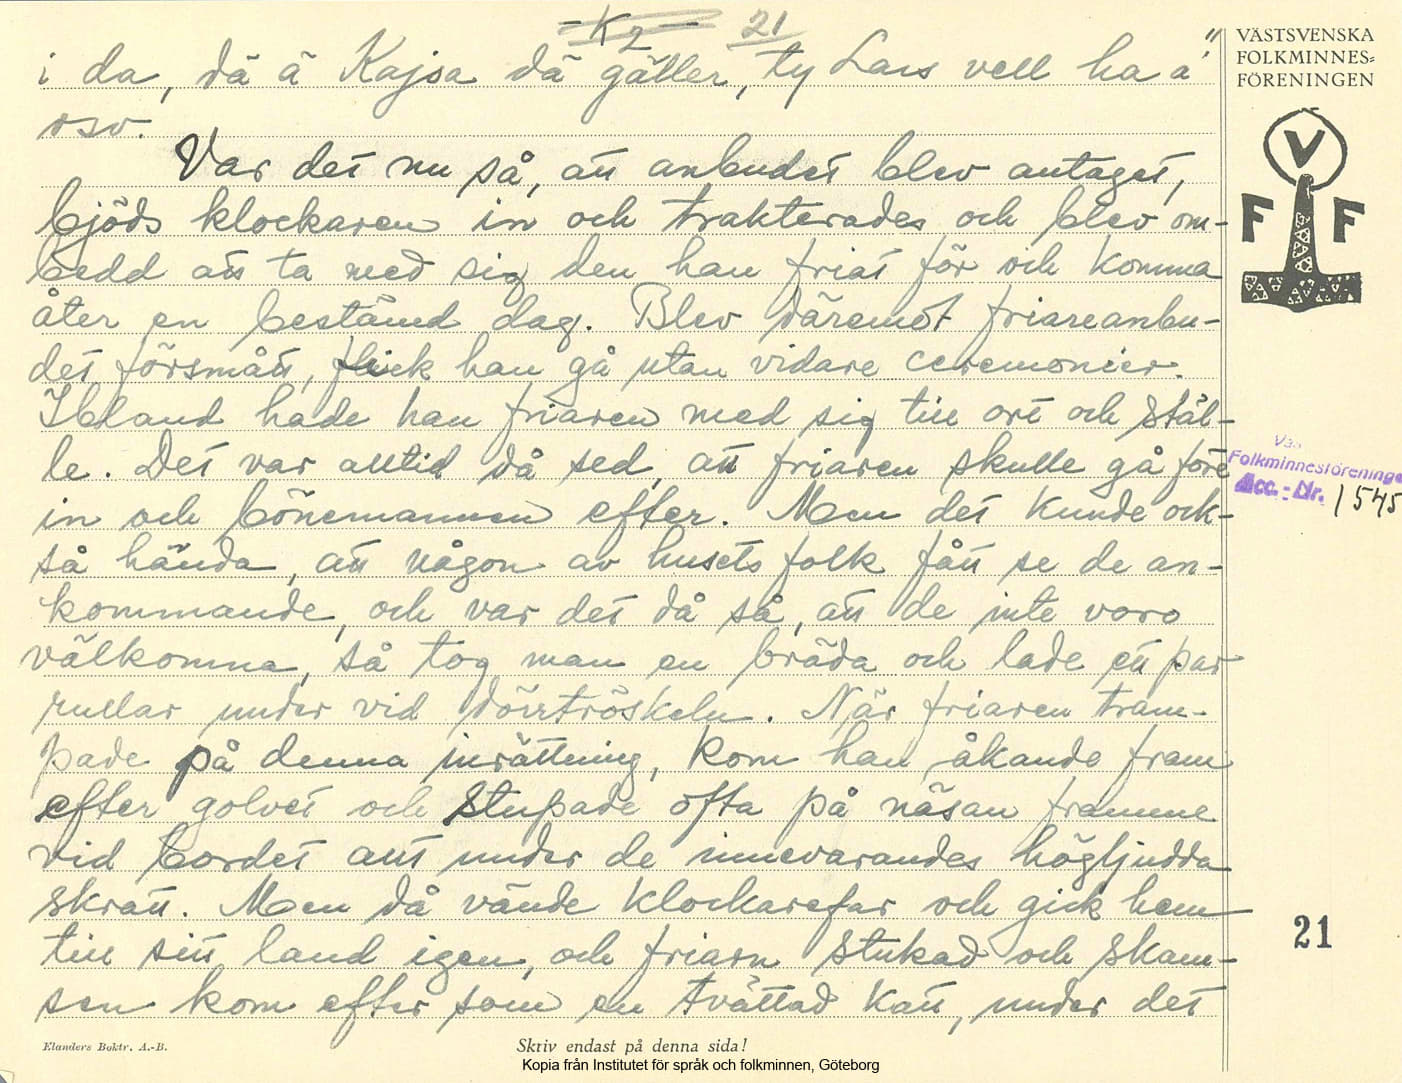 K 2 21
i da, dä ä Kajsa dä gäller, ty Lars vell ha a"
osv.
Var det nu så, att anbudet blev antaget,
bjöds klockaren in och trakterades och blev om-
bedd att ta med sig den han friat för och komma
åter en bestämd dag. Blev däremot friareanbu-
det försmått, fick han gå utan vidare ceremonier.
Ibland hade han friaren med sig till ort och stäl-
le. Det var alltid då sed, att friaren skulle gå före
in och bönemannen efter. Men det kunde ock-
så hända, att någon av husets folk fått se de an-
kommande, och var det då så, att de inte voro
välkomna, så tog man en bräda och lade ett par
rullar under vid dörrtröskeln. När friaren tram-
pade på denna inrättning, kom han åkande fram
efter golvet och stupade ofta på näsan framme
vid bordet allt under de innevarandes högljudda
skratt. Men då vände klockarefar och gick hem
till sitt land igen, och friarn stukad och skam-
sen kom efter som en tvättad katt, under det
VÄSTSVENSKA
FOLKMINNES=
FÖRENINGEN
V
F F
Folkminnesföreninge
Acc.-Nr. 1545
21
Elanders Boktr. A.-B.
Skriv endast på denna sida!
Kopia från Institutet för språk och folkminnen, Göteborg